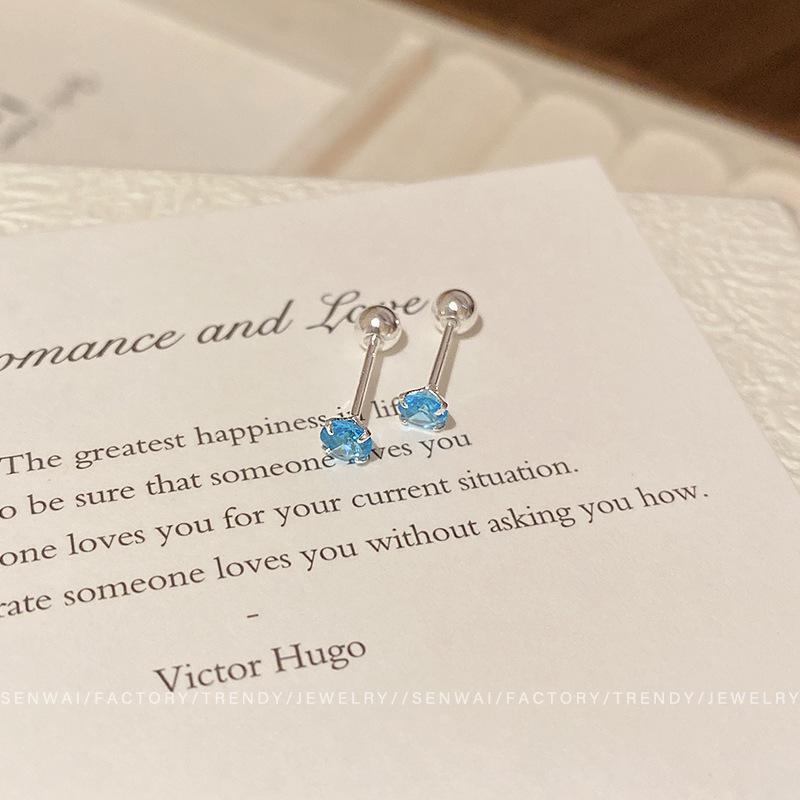 omance and Love
The greatest happiness in life
o be sure that someone loves you
one loves you for your current situation.
rate someone loves you without asking you how.
-
Victor Hugo
SENWAI/FACTORY/TRENDY/JEWELRY//SENWAI/FACTORY/TRENDY/JEWELRY